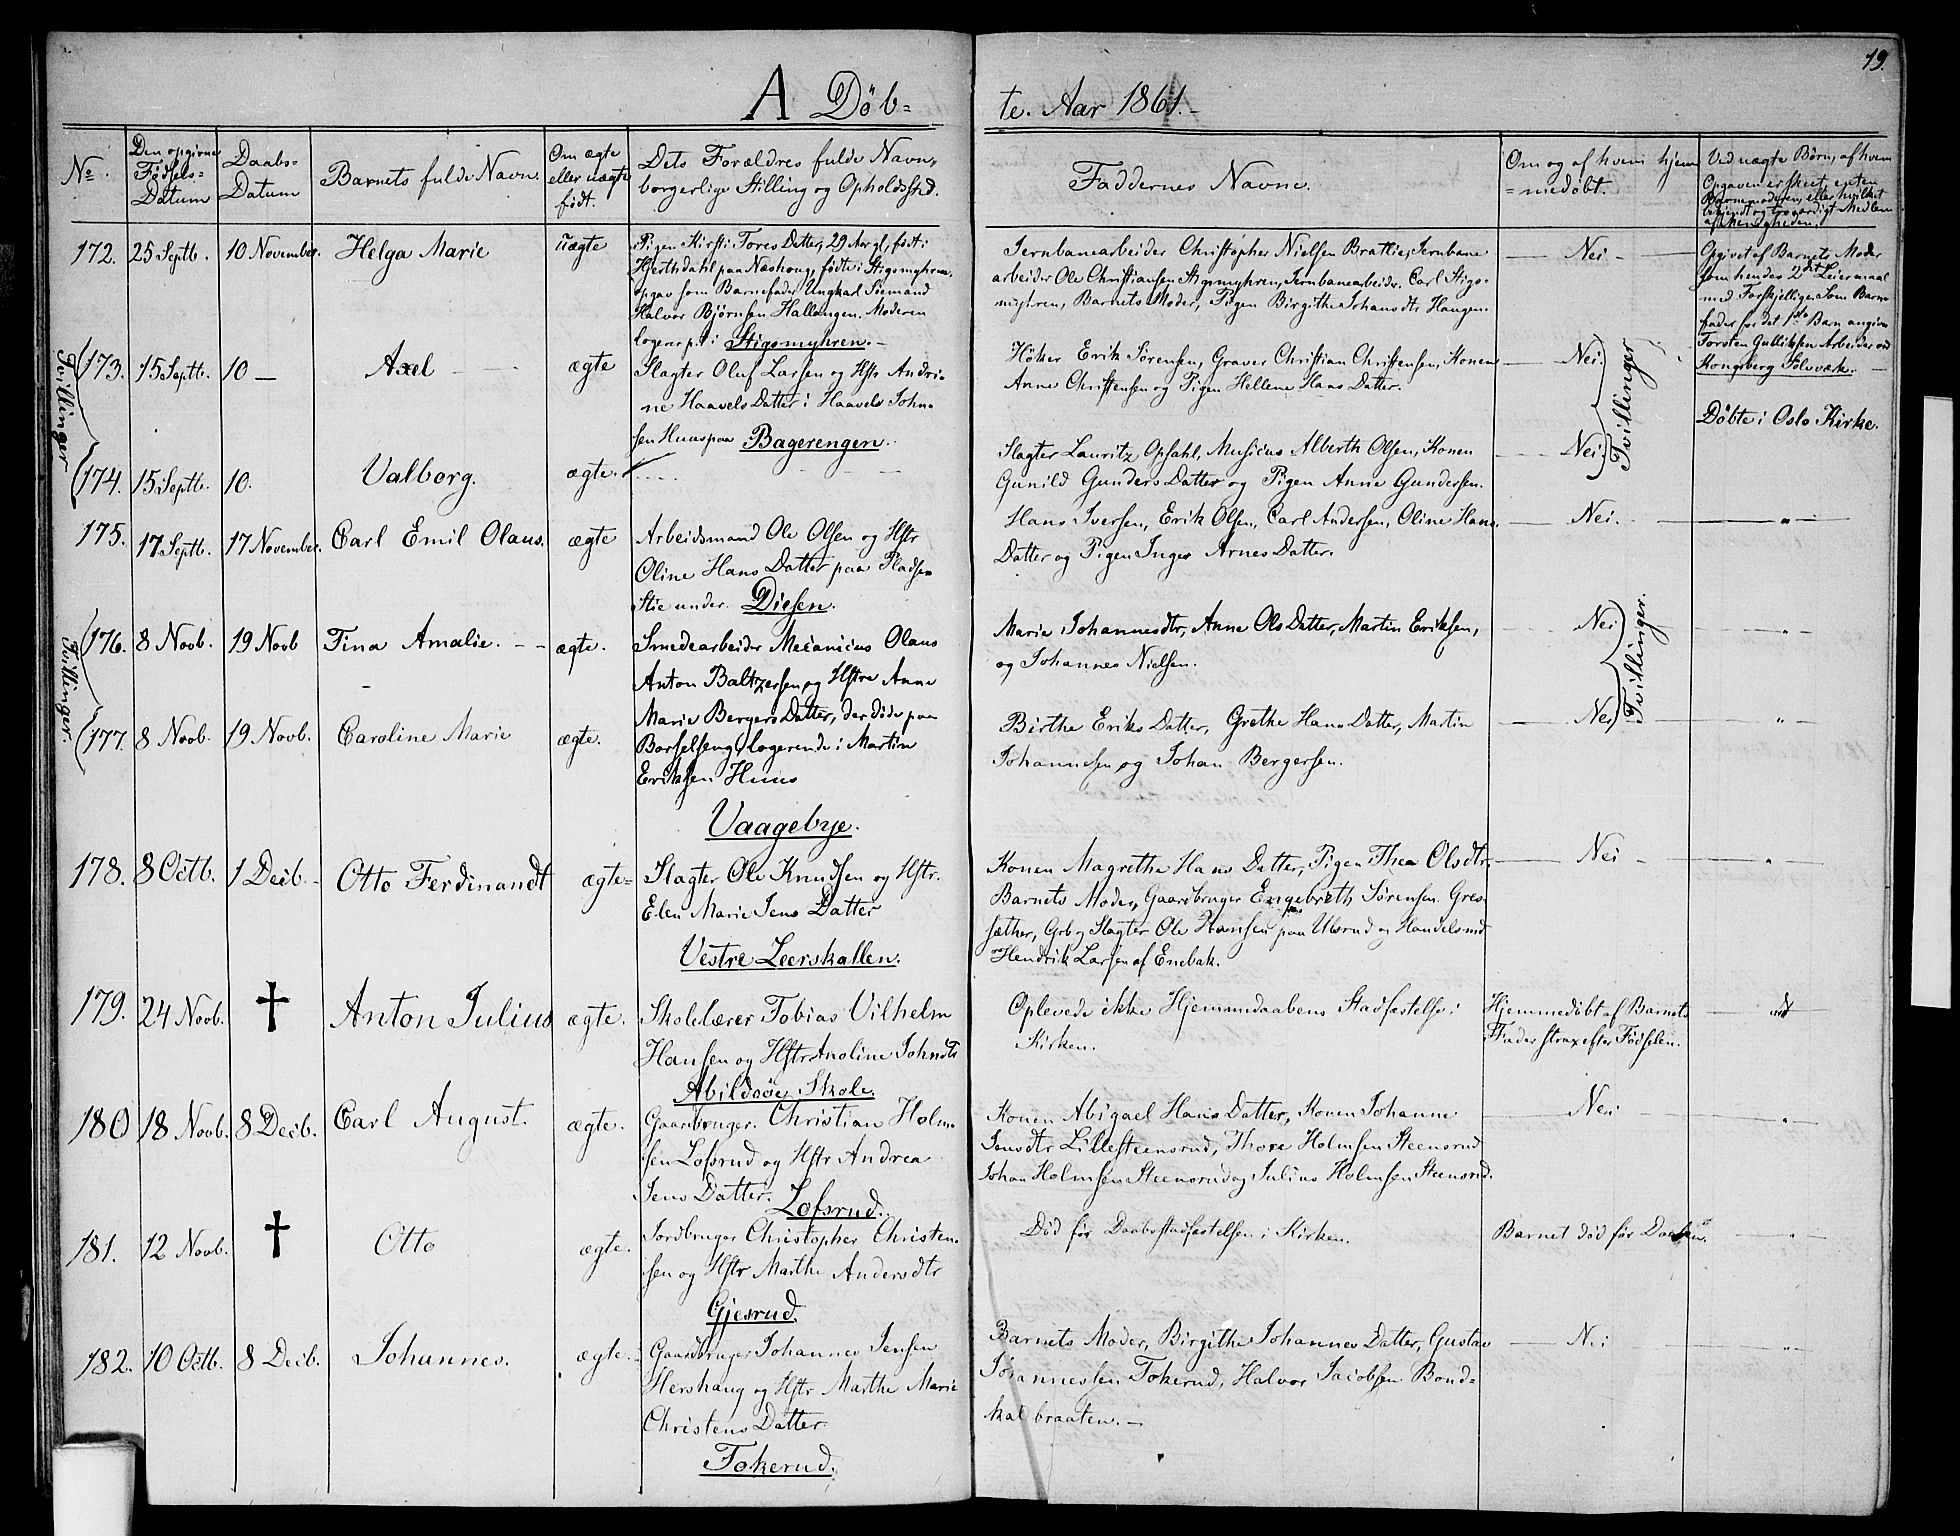 19.
A Døb-
te. Aar 1861.-
No.
Den opgivne Fødsels-Datum
Daabs-Datum
Barnets fulde Navn.
Om ægte eller uægte født.
Dets Forældres fulde Navn, borgerlige Stilling og Opholdssted.
Faddernes Navne.
Om og af hvem hjem=medøbt.
Ved uægte Børn, af hvem Opgaven er skeet, enten Barnemoderen, eller hvilket bekjendt og troværdigt Medlem af Menigheden.
172. 25 Septb. 10 November. Helga Marie uægte
Pigen Kirsti Tores Datter, 29 Aar gl, født i
Hjerthdahl paa Næshoug, fødte i Stigsmyhren,
opgav som Barnefader Ungkarl Søemand
Halvor Bjørnsen Hallangen. Moderen
logerer p.t. i Stigsmyhren.-
Jernbanearbeider Christopher Nielsen Bratlie, Jernbane
arbeider Ole Christiansen Stigsmyhren, Jernbanearbeider Carl Stigs-
myhren, Barnets Moder, Pigen Birgithe Johansdt Haugen.
Nei
Opgivet af Barnets Moder
som hendes 2det Leiermaal
med Forskjellige. Som Barne
fader for det 1ste Barn angives
Torsten Gulliksen Arbeider ved
Kongsberg Sølvværk.
Tvillinger
173. 15 Septb. 10 — Axel ægte
Slagter Oluf Larsen og Hstr Andri-
ne Haavels Datter i Haavels John-
sen Huus paa Bagerengen.
Høker Erik Sørensen, Graver Christian Christensen, Konen
Anne Christensen og Pigen Hellene Hans Datter.
Nei.
Tvillinger
Døbte i Oslo Kirke.
174. 15 Septb. 10. Valborg. ægte.
Slagter Lauritz Opsahl, Musicus Alberth Olsen, Konen
Gunild Gunders Datter og Pigen Anne Gundersen.
Nei.
175. 17 Septb. 17 November. Carl Emil Olaus. ægte
Arbeidsmand Ole Olsen og Hstr
Oline Hans Datter paa Pladsen
Stie under Disen.
Hans Iversen, Erik Olsen, Carl Andersen, Oline Hans
Datter og Pigen Inger Arnes Datter.
Nei.
Tvillinger.
176. 8 Novb. 19 Novb Tina Amalie. ægte.
Smedearbeider Mecanicus Olaus
Anton Baltzersen og Hstre Anne
Marie Bergers Datter, der døde paa
logerende i Martin
Eriksen Huus
Vaagebye.
Marie Johannesdtr, Anne Ols Datter, Martin Eriksen,
og Johannes Nielsen.
Nei
Tvillinger.
177. 8 Novb. 19 Novb. Caroline Marie ægte.
Birthe Eriks Datter, Grethe Hans Datter, Martin
Johannesen og Johan Bergersen.
Nei
178. 8 Octb. 1 Decb. Otto Ferdinandt ægte
Slagter Ole Knudsen og Hstr.
Elen Marie Jens Datter
Vestre Leerskallen.
Konen Magrethe Hans Datter, Pigen Thea Olsdtr,
Barnets Moder, Gaardbruger Engebreth Sørensen Gres-
sæther, Grb og Slagter Ole Hansen paa Ulsrud og Handelsmd
Hendrik Larsen af Enebak.
Nei
179. 24 Novb. † Anton Julius ægte.
Skolelærer Tobias Vilhelm
Hansen og Hstr Anoline Johndtr
Abildsøe Skole.
Oplevede ikke Hjemmedaabens Stadfæstelse i
Kirken.
Hjemmedøbt af Barnets
Fader strax efter Fødselen.
180 18 Novb. 8 Decb. Carl August. ægte.
Gaardbruger Christian Holm-
sen Lofsrud og Hstr Andrea
Jens Datter. Lofsrud.
Konen Abigael Hans Datter, Konen Johanne
Jensdtr Lillesteensrud, Thore Holmsen Steensrud
Johan Holmsen Steensrud og Julius Holmsen Steensrud.
Nei
181. 12 Novb. † Otto ægte.
Jordbruger Christopher Christen-
sen og Hstr Marthe Andersdtr
Gjesrud.
Død før Daabsstadfæstelsen i Kirken.
Barnet død før Daaben.
182. 10 Octb. 8 Decb. Johannes. ægte.
Gaardbruger Johannes Jensen
Hershaug og Hstr Marthe Marie
Christens Datter
Tokerud.
Barnets Moder, Birgithe Johannes Datter, Gustav
Johannessen Tokerud, Halvor Jacobsen Bond-
kalbraaten.-
Nei